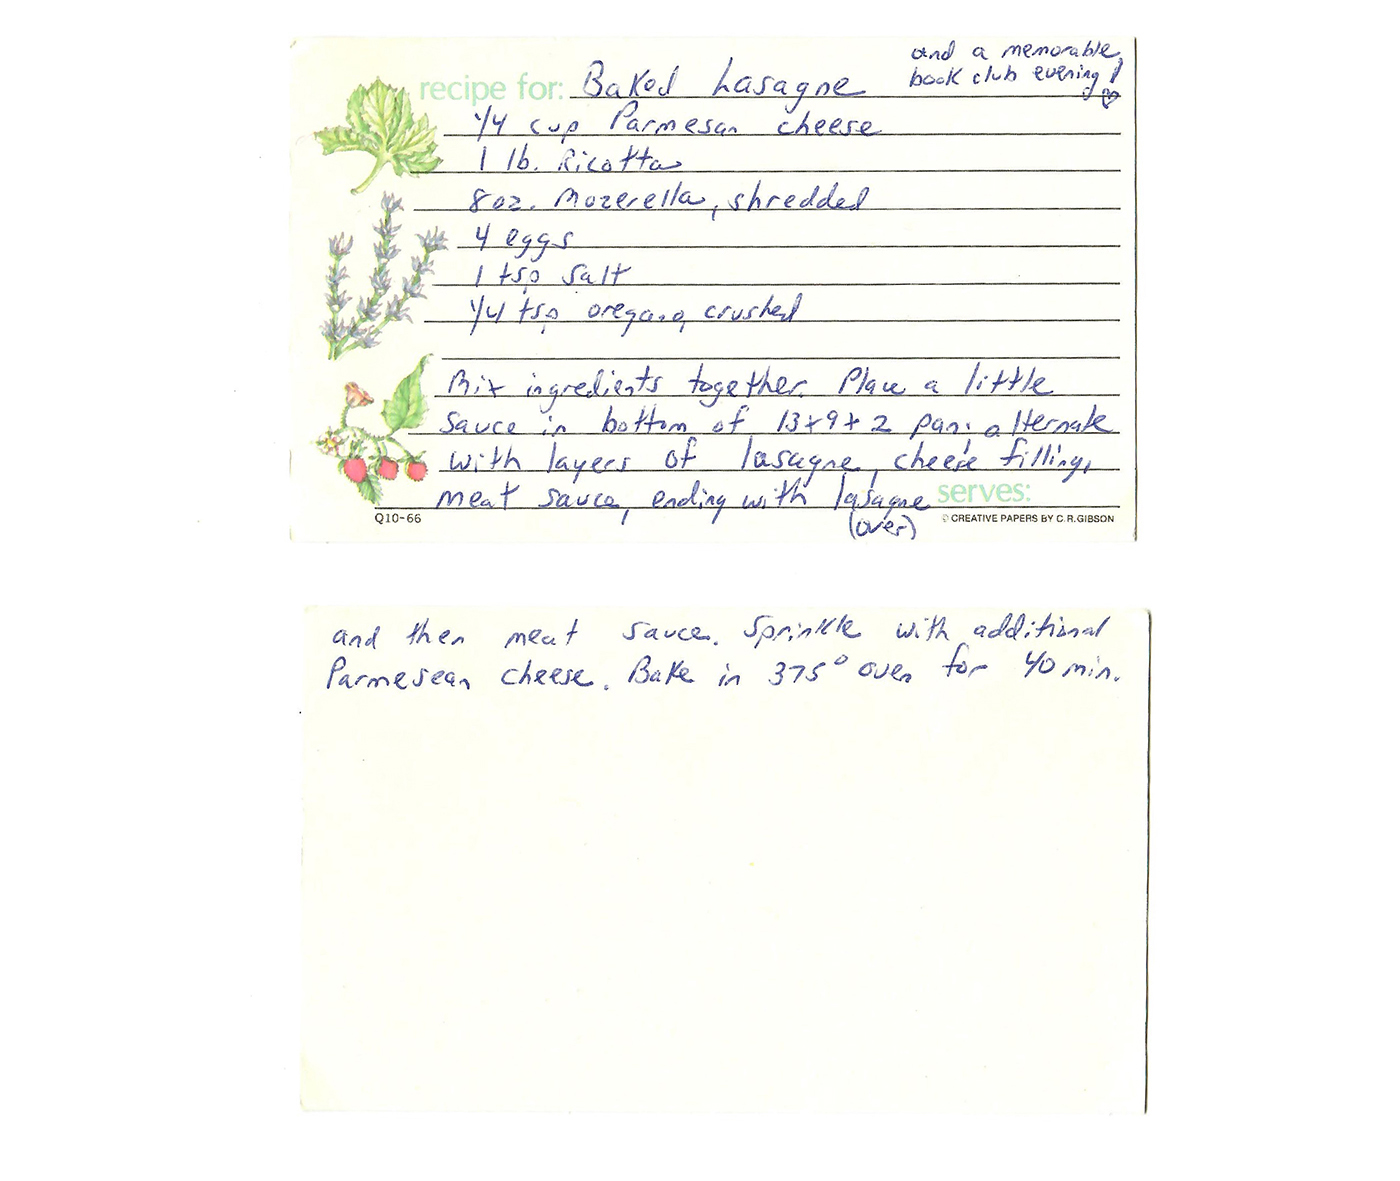 and a memorable
book club evening!
recipe for: Baked Lasagne
1/4 cup Parmesan cheese
1 lb. Ricotta
8 oz. Mozerella, shredded
4 eggs
1 tsp salt
1/4 tsp oregano, crushed
Mix ingredients together. Place a little
sauce in bottom of 13x9x2 pan: alternate
with layers of lasagne, cheese filling,
meat sauce, ending with lasagne
serves:
(over)
Q10-66
© CREATIVE PAPERS BY C.R.GIBSON
and then meat sauce. Sprinkle with additional
Parmesean cheese. Bake in 375° oven for 40 min.